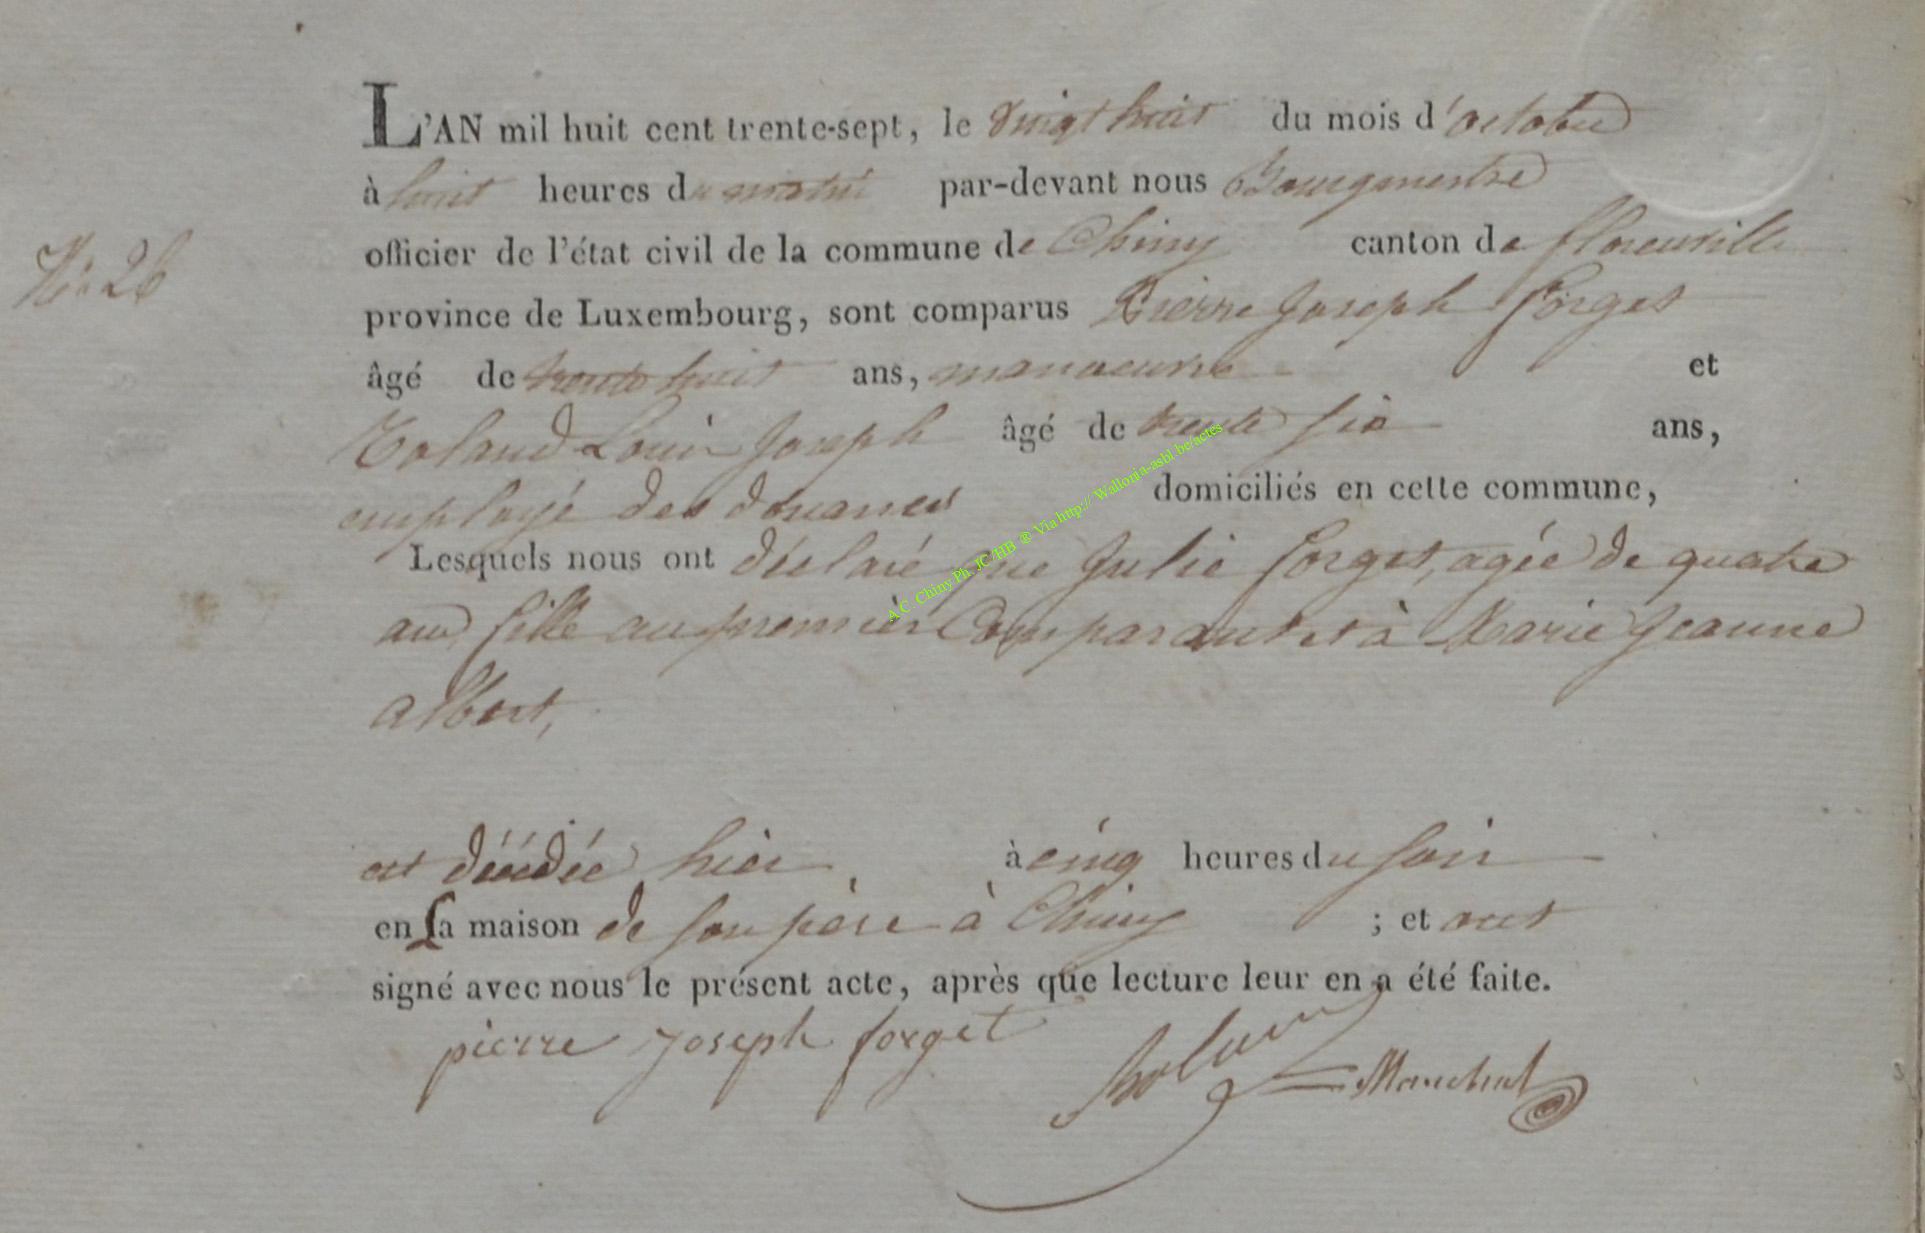 L'AN mil huit cent trente-sept, le vingt huit du mois d'octobre
à huit heures du matin par-devant nous Bourgmestre
officier de l'état civil de la commune de Chiny canton de florenville
No 26
province de Luxembourg, sont comparus Pierre Joseph Forget
âgé de trente huit ans, manoeuvre et
Roland Louis Joseph âgé de trente six ans,
employé des douanes domiciliés en cette commune,
Lesquels nous ont déclaré que Julie forget, agée de quatre
ans, fille au premier Comparant et à Marie Jeanne
albert,
est décédée hier, à cinq heures du soir
en sa maison de son père à Chiny ; et ont
signé avec nous le présent acte, après que lecture leur en a été faite.
pierre joseph forget
A.C. Chiny Ph. JC/HB ® Via http:// Wallonia-asbl be/actes